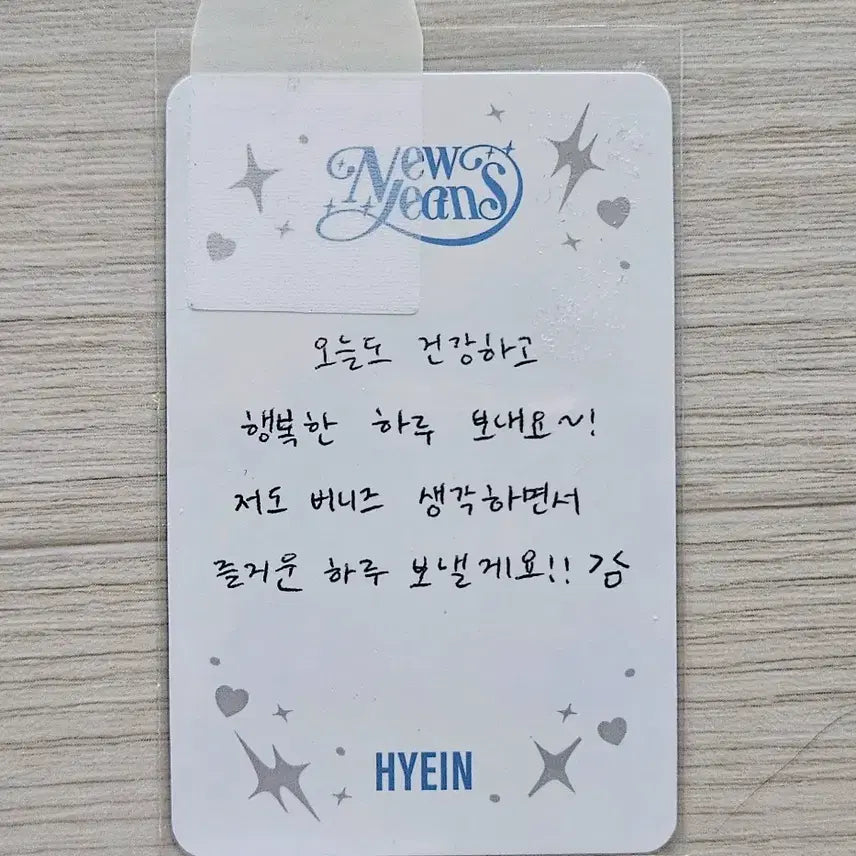 NewJeans
오늘도 건강하고
행복한 하루 보내요~!
저도 버니즈 생각하면서
즐거운 하루 보낼게요!! 감
HYEIN